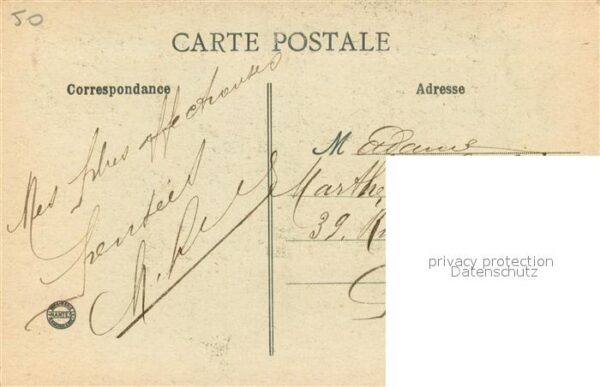 50
CARTE POSTALE
Correspondance
Adresse
Mes plus affectueuses
pensées
Madame
Marthe
39, Ru
privacy protection
Datenschutz